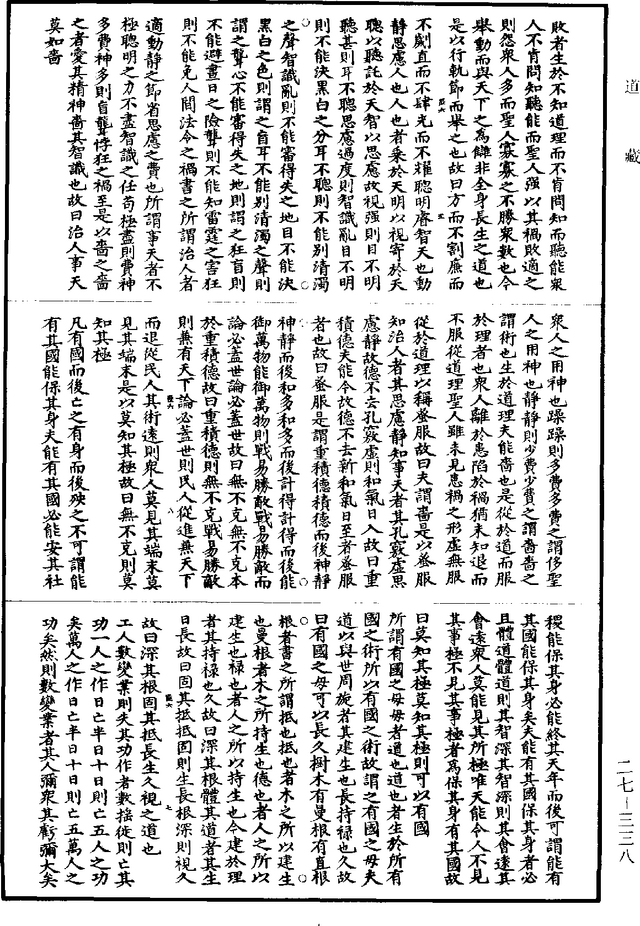 道藏
敗者生於不知道理而不肯問知而聽能衆
人不肯問知聽能而聖人强以其禍敗適之
則怨衆人多而聖人寡寡之不勝衆數也今
舉動而與天下之為讎非全身長生之道也
是以行軌節而舉之也故曰方而不割廉而
不劌直而不肆光而不耀聰明睿智天也動
静思慮人也人也者乗於天明以視寄於天
聰以聽託於天智以思慮故視强則目不明
聽甚則耳不聰思慮過度則智識亂目不明
則不能決黒白之分耳不聰則不能别清濁
之聲智識亂則不能審得失之地目不能決
黒白之色則謂之盲耳不能别清濁之聲則
謂之聾心不能審得失之地則謂之狂盲則
不能避晝日之險聾則不能知雷霆之害狂
則不能免人間法令之禍書之所謂治人者
適動静之節省思慮之費也所謂事天者不
極聰明之力不盡智識之任苟極盡則費神
多費神多則盲聾悖狂之禍至是以嗇之嗇
之者愛其精神嗇其智識也故曰治人事天
莫如嗇
衆人之用神也躁躁則多費多費之謂侈聖
人之用神也静静則少費少費之謂嗇嗇之
謂術也生於道理夫能嗇也是從於道而服
於理者也衆人離於患陷於禍猶未知退而
不服從道理聖人雖未見患禍之形虚無服
從於道理以稱蚤服故曰夫謂嗇是以蚤服
知治人者其思慮静知事天者其孔竅虚思
慮静故德不去孔竅虚則和氣日入故曰重
積德夫能令故德不去新和氣日至者蚤服
者也故曰蚤服是謂重積德積德而後神静
神静而後和多和多而後計得計得而後能
御萬物能御萬物則戰易勝敵戰易勝敵而
論必蓋世論必蓋世故曰無不克無不克本
於重積德故曰重積德則無不克戰易勝敵
則兼有天下論必蓋世則民人從進兼天下
而退從民人其術逺則衆人莫見其端末莫
見其端末是以莫知其極故曰無不克則莫
知其極
凡有國而後亡之有身而後殃之不可謂能
有其國能保其身夫能有其國必能安其社
稷能保其身必能終其天年而後可謂能有
其國能保其身矣夫能有其國保其身者必
且體道體道則其智深其智深則其會逺其
會逺衆人莫能見其所極唯天能令人不見
其事極不見其事極者為保其身有其國故
曰莫知其極莫知其極則可以有國
所謂有國之母母者道也道也者生於所有
國之術所以有國之術故謂之有國之母夫
道以與世周旋者其建生也長持禄也久故
曰有國之母可以長久樹木有曼根有直根
根者書之所謂柢也柢也者木之所以建生
也曼根者木之所持生也德也者人之所以
建生也禄也者人之所以持生也今建於理
者其持禄也久故曰深其根體其道者其生
日長故曰固其柢柢固則生長根深則視久
故曰深其根固其柢長生久視之道也
工人數變業則失其功作者數揺徙則亡其
功一人之作日亡半日十日則亡五人之功
矣萬人之作日亡半日十日則亡五萬人之
功矣然則數變業者其人彌衆其虧彌大矣
二七-三二八